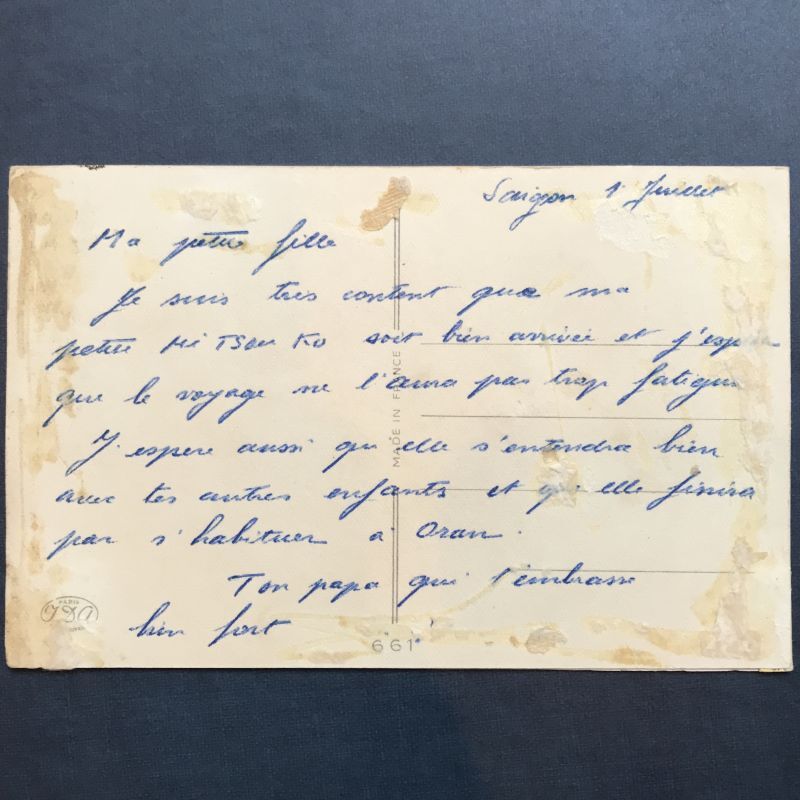 Saigon 1 Juillet
Ma petite fille
Je suis très content que ma
petite Mi Tsou Ko soit bien arrivée et j'espère
que le voyage ne l'aura pas trop fatigué
J'espere aussi qu'elle s'entendra bien
avec tes autres enfants et qu'elle finira
par s'habituer à Oran.
Ton papa qui t'embrasse
bien fort
MADE IN FRANCE
PARIS
JDA
661